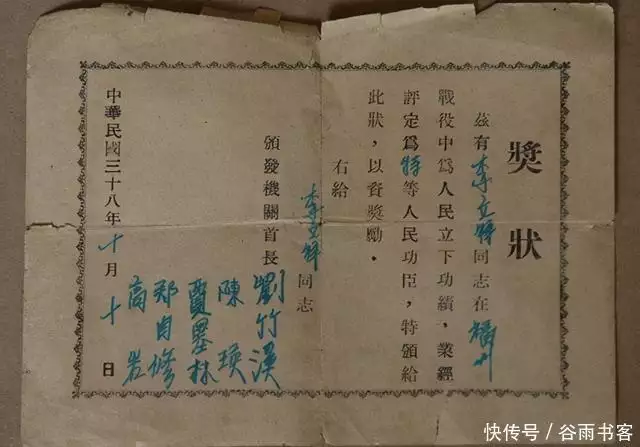 獎狀
茲有李立同志在福州
戰役中爲人民立下功績,業經
評定爲特等人民功臣,特頒給
此狀,以資獎勵.
右給
李立同志
頒發機關首長
劉竹溪
陳瑛
賈墨林
郑自修
高岩
中華民國三十八年十月十日
快传号 / 谷雨书客